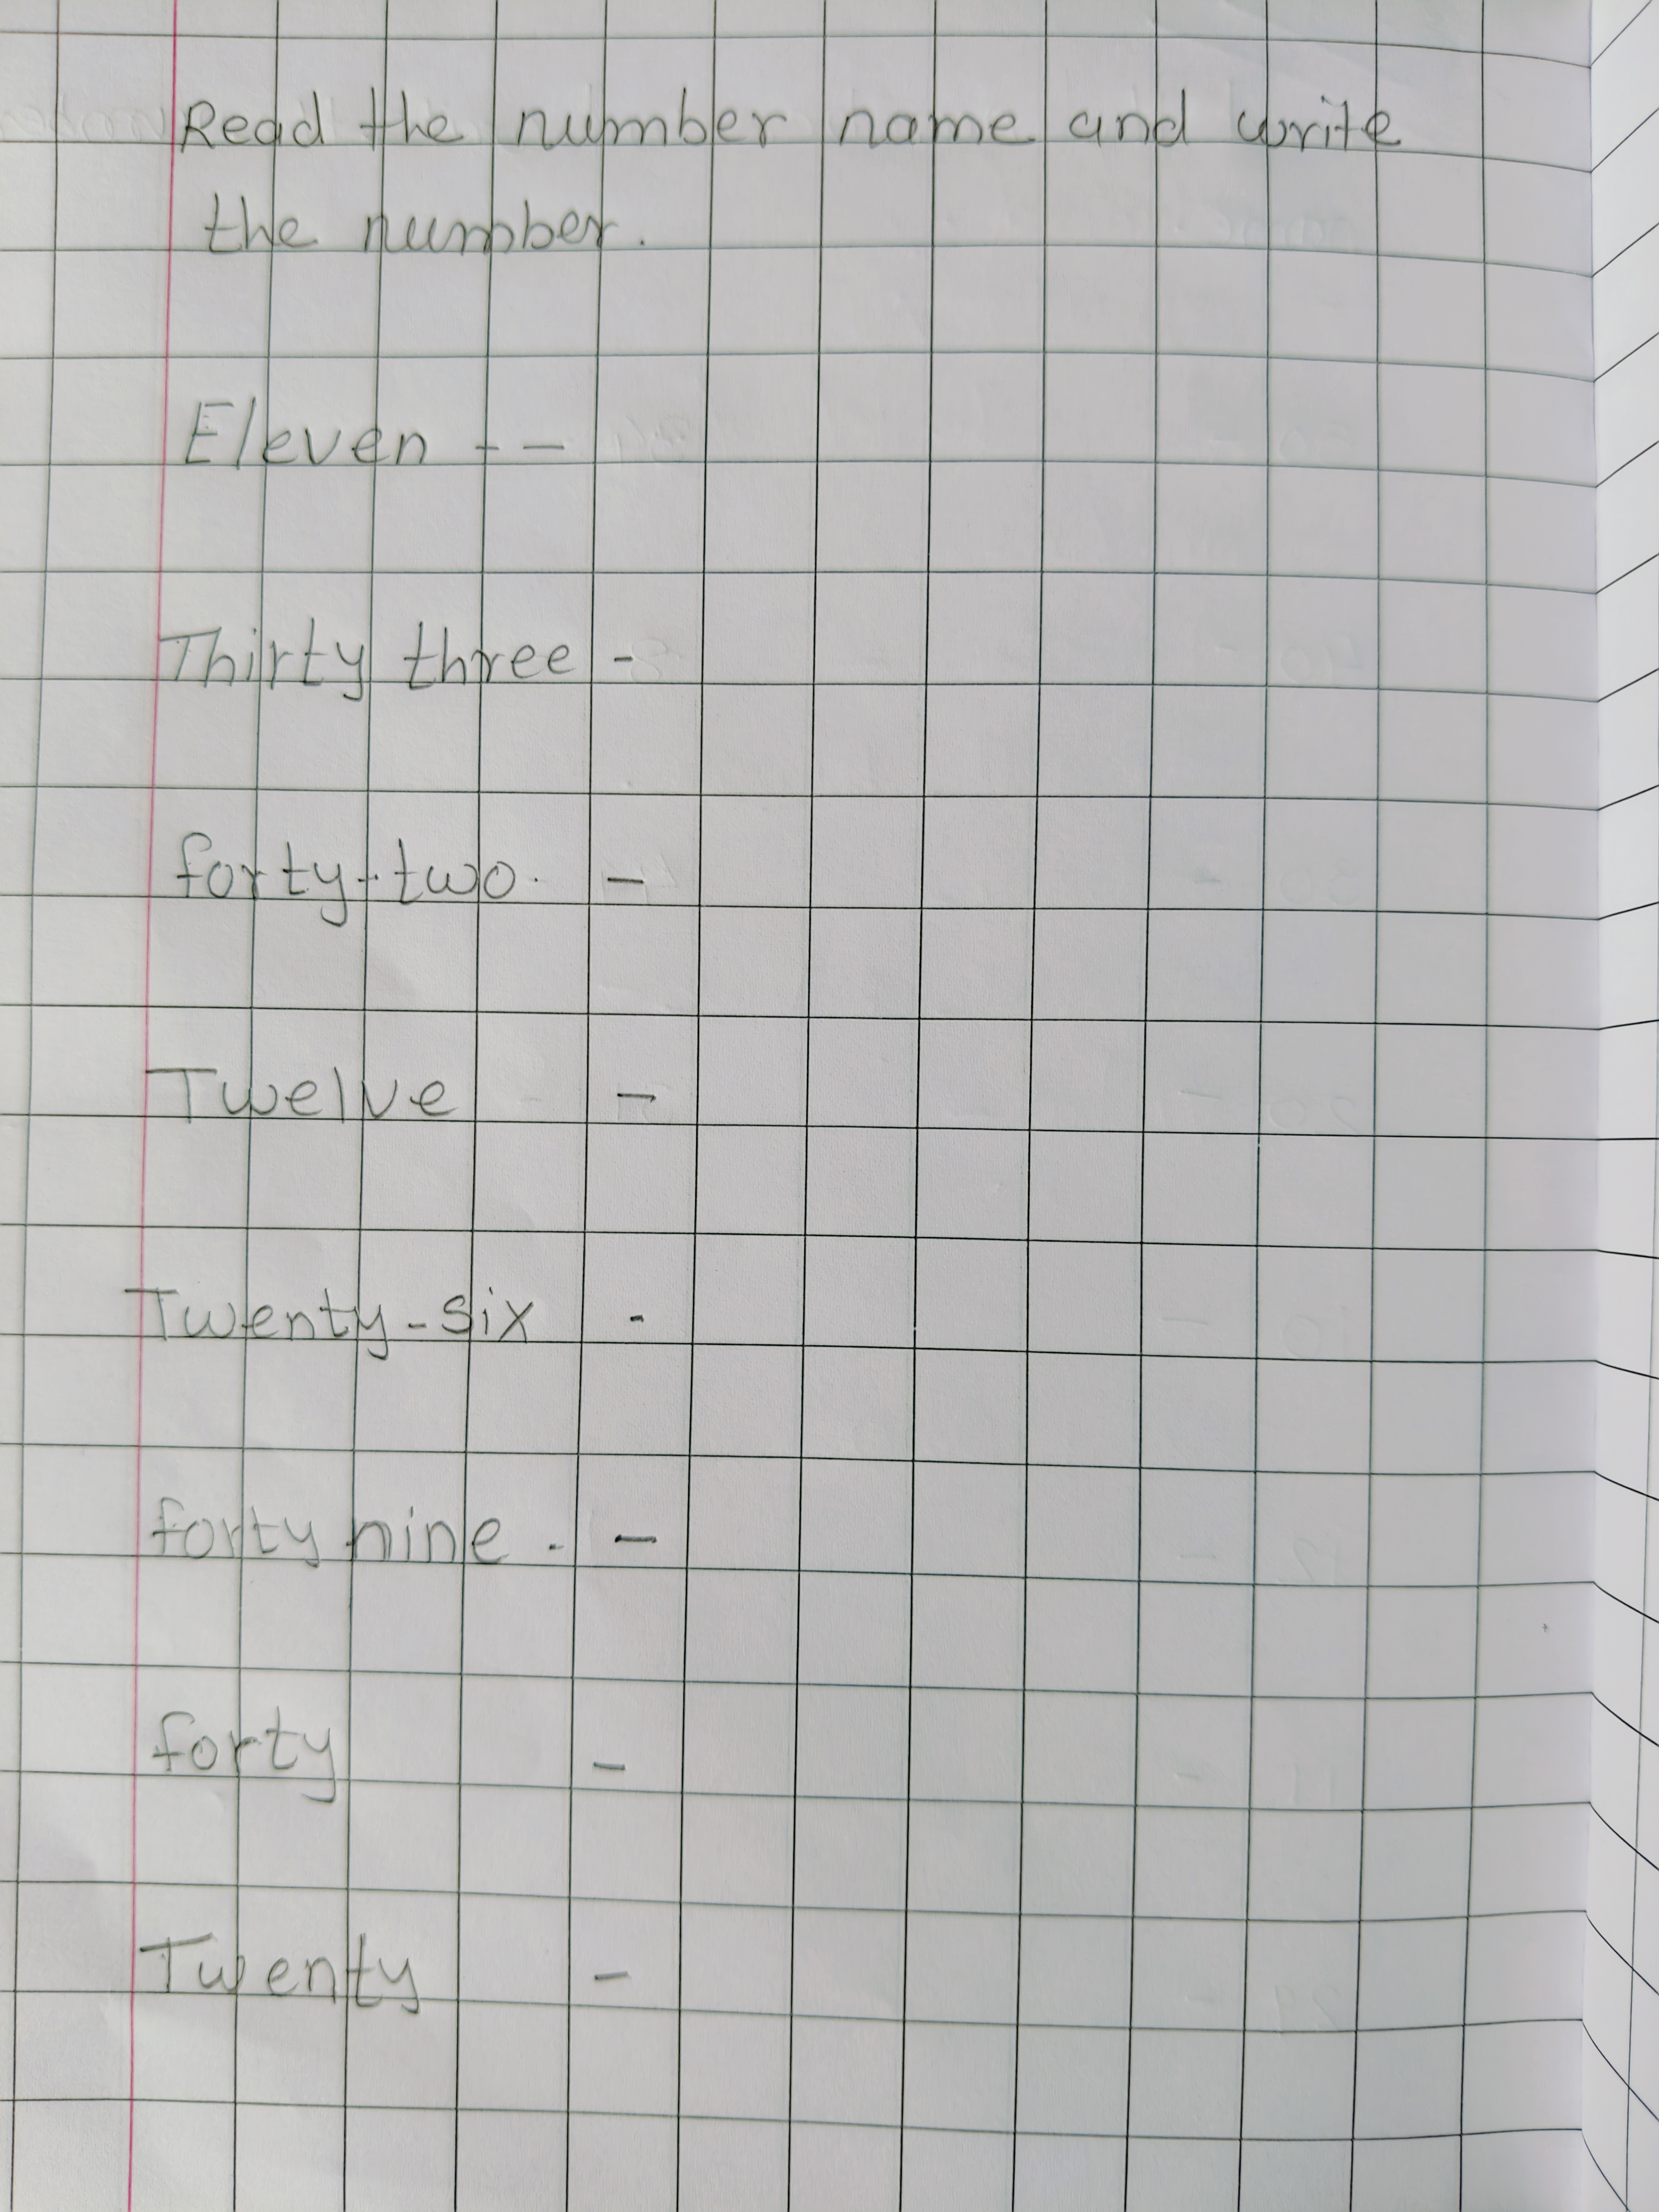 Read the number name and write
the number.
Eleven - -
Thirty three -
forty - two. -
Twelve -
Twenty - six -
forty nine . -
forty -
Twenty -